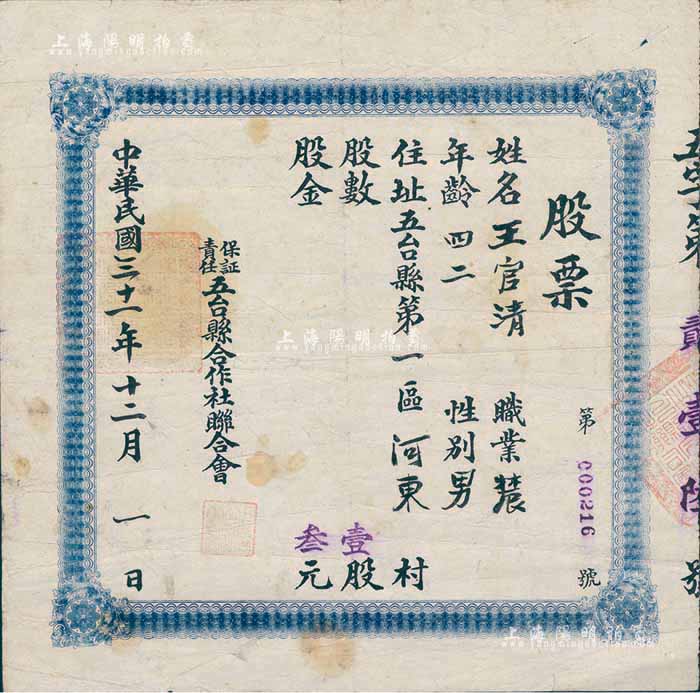 五字第 貳壹陸 號
股票
第 000216 號
姓名 王官清 職業 農
年齡 四二 性別 男
住址 五台縣第一區河東村
股數 壹股
股金 叁元
保証責任 五台縣合作社聯合會
中華民國三十一年十二月一日
上海陽明拍賣
www.yangmingauction.com
上海陽明拍賣
www.yangmingauction.com
上海陽明拍賣
www.yangmingauction.com